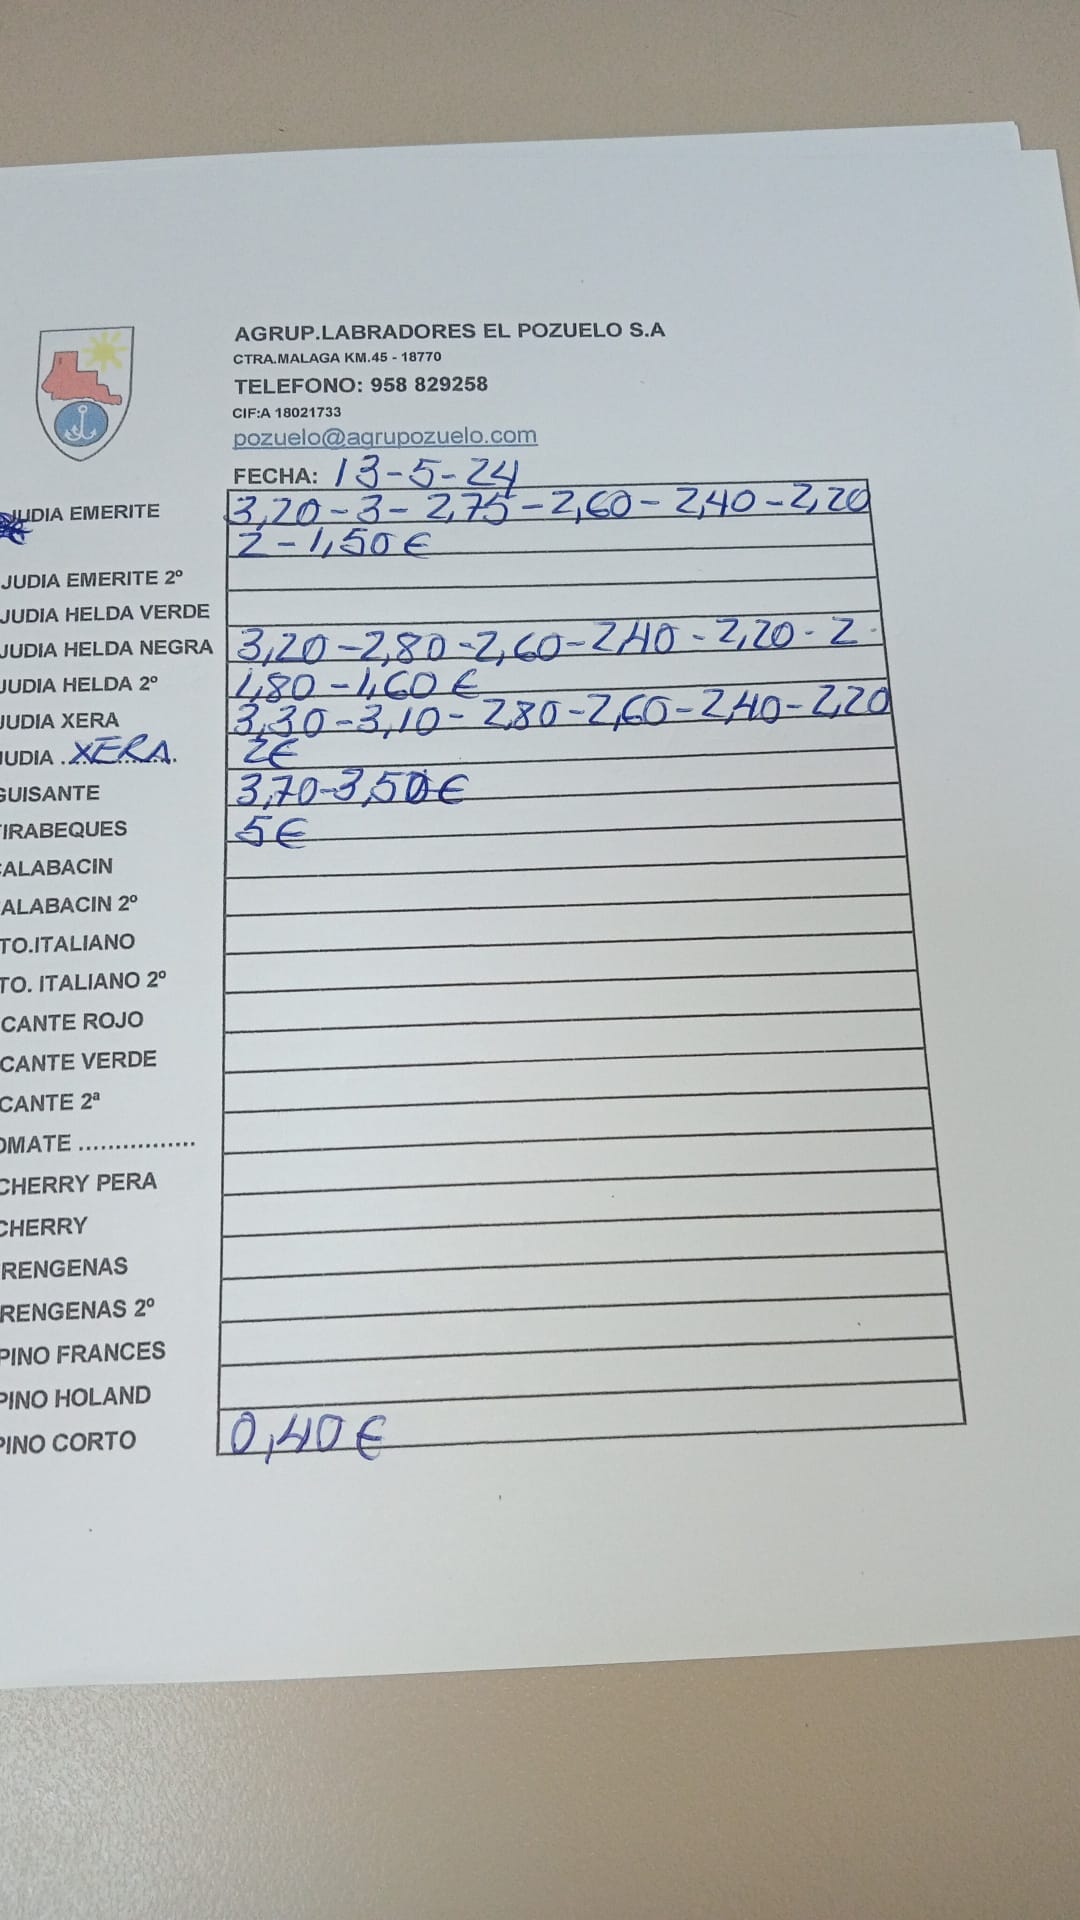 AGRUP.LABRADORES EL POZUELO S.A
CTRA.MALAGA KM.45 - 18770
TELEFONO: 958 829258
CIF:A 18021733
pozuelo@agrupozuelo.com
FECHA: 13-5-24
JUDIA EMERITE 3,20-3-2,75-2,60-2,40-2,20
2-1,50€
JUDIA EMERITE 2º
JUDIA HELDA VERDE
JUDIA HELDA NEGRA 3,20-2,80-2,60-2,40-2,20-2-
JUDIA HELDA 2º 1,80-1,60€
JUDIA XERA 3,30-3,10-2,80-2,60-2,40-2,20
UDIA .XERA. 2€
GUISANTE 3,70-3,50€
TIRABEQUES 5€
CALABACIN
ALABACIN 2º
TO.ITALIANO
TO. ITALIANO 2º
CANTE ROJO
CANTE VERDE
CANTE 2ª
OMATE ................
CHERRY PERA
CHERRY
RENGENAS
RENGENAS 2º
PINO FRANCES
PINO HOLAND
PINO CORTO 0,40€